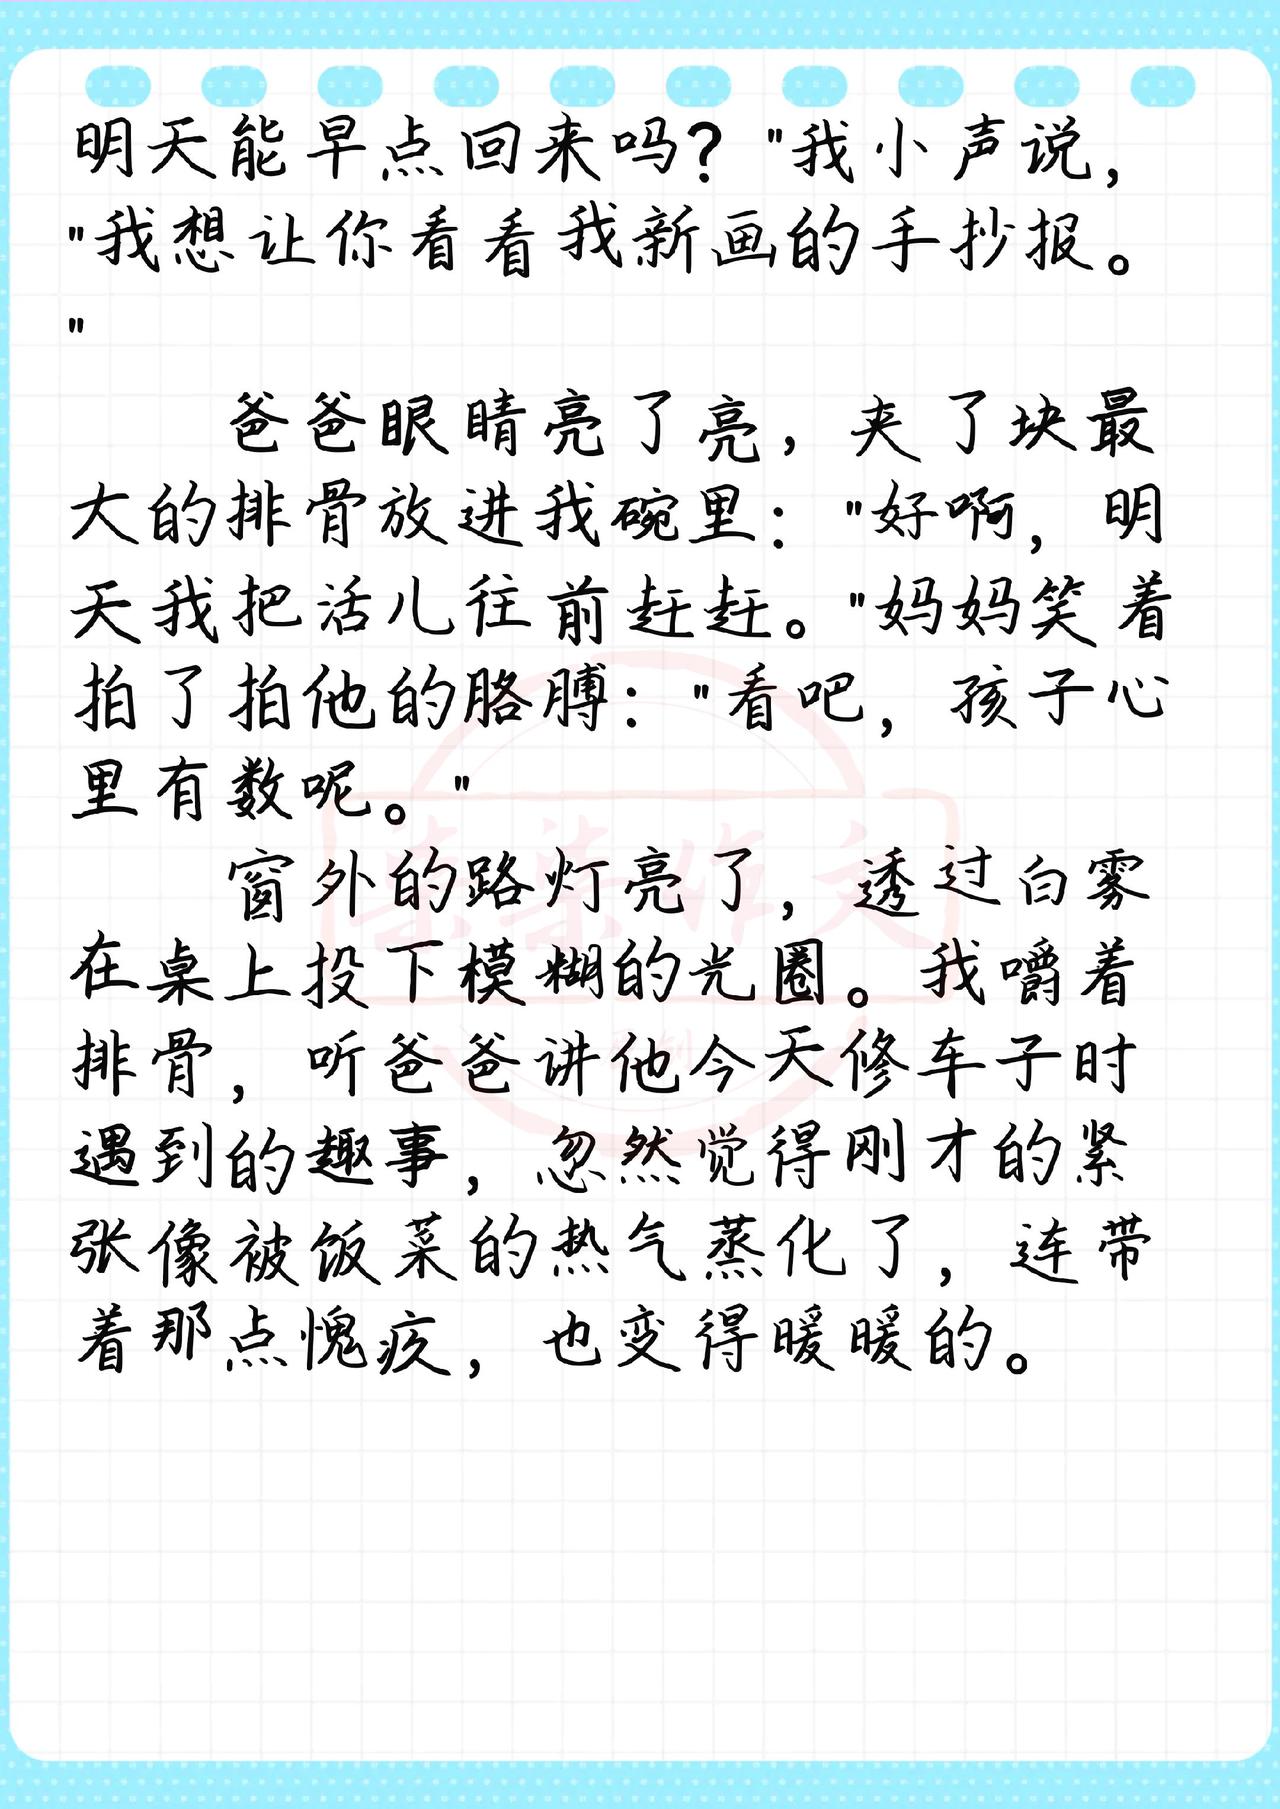 明天能早点回来吗？"我小声说，
"我想让你看看我新画的手抄报。
"
爸爸眼睛亮了亮，夹了块最
大的排骨放进我碗里："好啊，明
天我把活儿往前赶赶。"妈妈笑着
拍了拍他的胳膊："看吧，孩子心
里有数呢。"
窗外的路灯亮了，透过白雾
在桌上投下模糊的光圈。我嚼着
排骨，听爸爸讲他今天修车子时
遇到的趣事，忽然觉得刚才的紧
张像被饭菜的热气蒸化了，连带
着那点愧疚，也变得暖暖的。